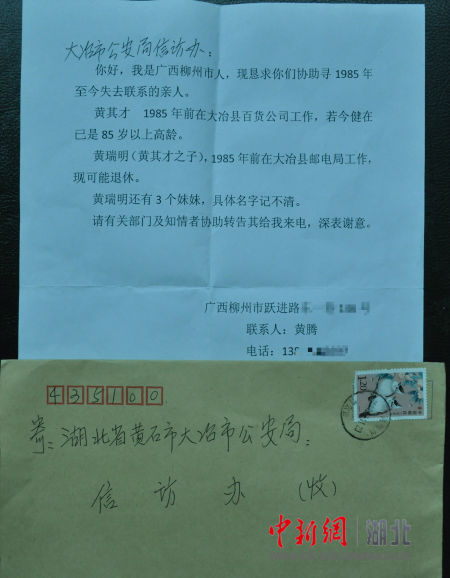 大冶市公安局信访办：
你好，我是广西柳州市人，现恳求你们协助寻1985年
至今失去联系的亲人。
黄其才 1985年前在大冶县百货公司工作，若今健在
已是85岁以上高龄。
黄瑞明（黄其才之子），1985年前在大冶县邮电局工作，
现可能退休。
黄瑞明还有3个妹妹，具体名字记不清。
请有关部门及知情者协助转告其给我来电，深表谢意。
广西柳州市跃进路
联系人：黄腾
电话：13
435100
寄：湖北省黄石市大冶市公安局：
信访办（收）
中新網 湖北